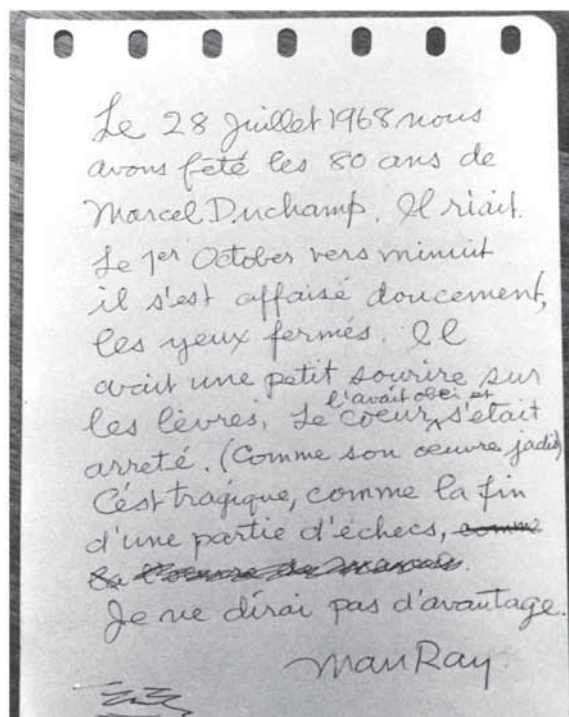 Le 28 Juillet 1968 nous
avons fêté les 80 ans de
Marcel Duchamp. Il riait.
Le 1er October vers minuit
il s'est affaisé doucement,
les yeux fermés. Il
avait une petit sourire sur
l'avait obei et
les lèvres. Le coeur, s'était
arreté. (Comme son oeuvre jadis)
C'est tragique, comme la fin
d'une partie d'échecs, comme
la l'oeuvre de Marcel.
Je ne dirai pas d'avantage.
Man Ray